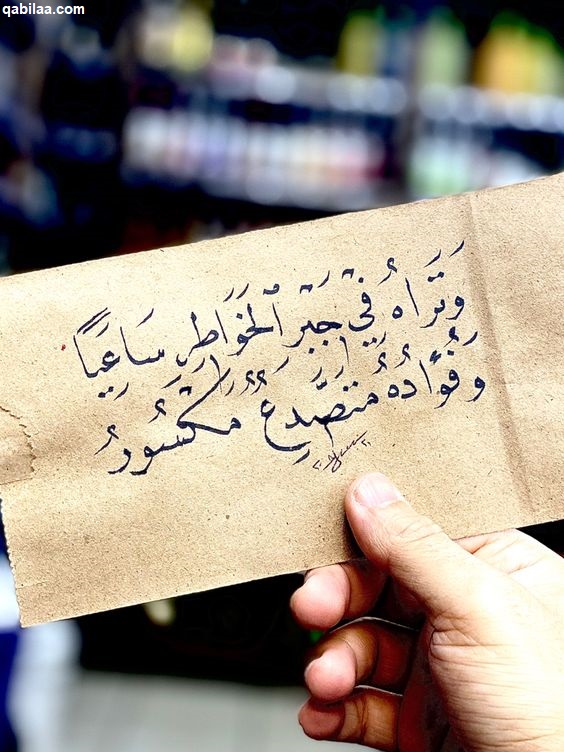 qabilaa.com
وَتَرَاهُ فِي جَبْرِ ٱلخَوَاطِرِ سَاعِيًا
وَفُؤَادُهُ مُتَصَدِّعٌ مَكْسُورُ